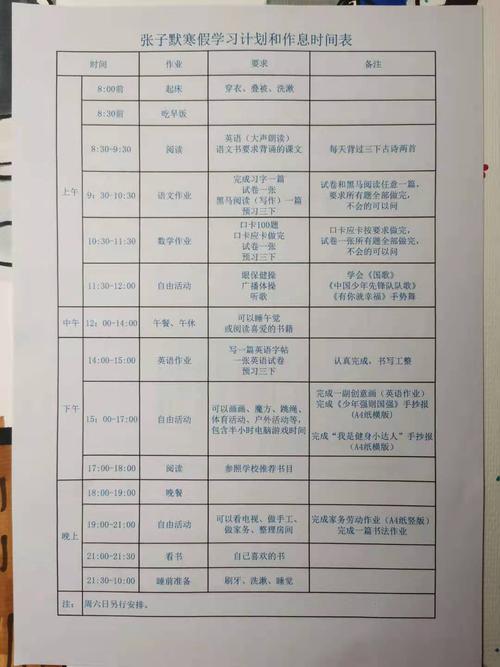 张子默寒假学习计划和作息时间表
时间 作业 要求 备注
上午
8:00前 起床 穿衣、叠被、洗漱
8:30前 吃早饭
8:30-9:30 阅读 英语（大声朗读）
语文书要求背诵的课文 每天背过三下古诗两首
9：30-10:30 语文作业 完成习字一篇
试卷一张
黑马阅读（写作）一篇
预习三下 试卷和黑马阅读任意一篇，
要求所有题全部做完，
不会的可以问
10:30-11:30 数学作业 口卡100题
口卡应卡做完
试卷一张
预习三下 口卡应卡按要求做完，
试卷一张所有题全部做完，
不会的可以问
11:30-12:00 自由活动 眼保健操
广播体操
听歌 学会《国歌》
《中国少年先锋队队歌》
《有你就幸福》手势舞
中午 12：00-14:00 午餐、午休 可以睡午觉
或阅读喜爱的书籍
下午
14:00-15:00 英语作业 写一篇英语字帖
一张英语试卷
预习三下 认真完成，书写工整
15：00-17:00 自由活动 可以画画、魔方、跳绳、
体育活动、户外活动等，
包含半小时电脑游戏时间 完成一副创意画（英语作业）
完成《少年强则国强》手抄报
(A4纸横版)
完成“我是健身小达人”手抄报
(A4纸横版)
17:00-18:00 阅读 参照学校推荐书目
晚上
18:00-19:00 晚餐
19:00-21:00 自由活动 可以看电视、做手工、
做家务、整理房间 完成家务劳动作业（A4纸竖版）
完成一篇书法作业
21:00-21:30 看书 自己喜欢的书
21:30-10:00 睡前准备 刷牙、洗漱、睡觉
注： 周六日另行安排。